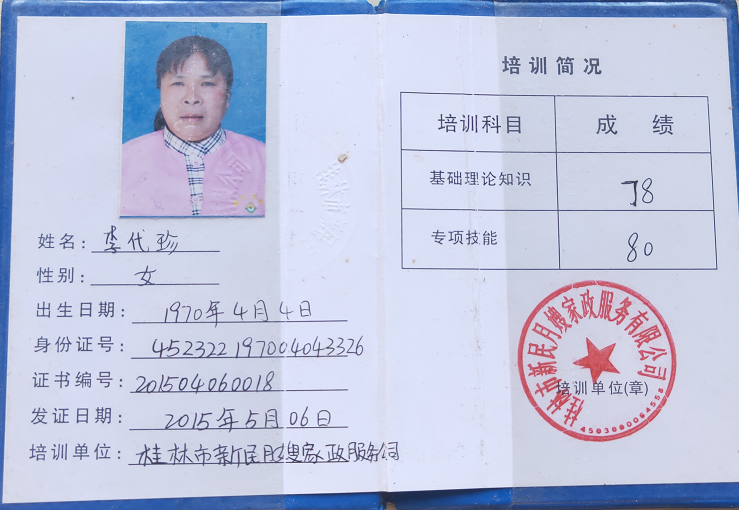 姓名: 李代珍
性别: 女
出生日期: 1970年4月4日
身份证号: 452322197004043326
证书编号: 201504060018
发证日期: 2015年5月06日
培训单位: 桂林市新民月嫂家政服务公司
培训简况
培训科目 成 绩
基础理论知识 78
专项技能 80
桂林市新民月嫂家政服务有限公司
培训单位(章)
4503000064558